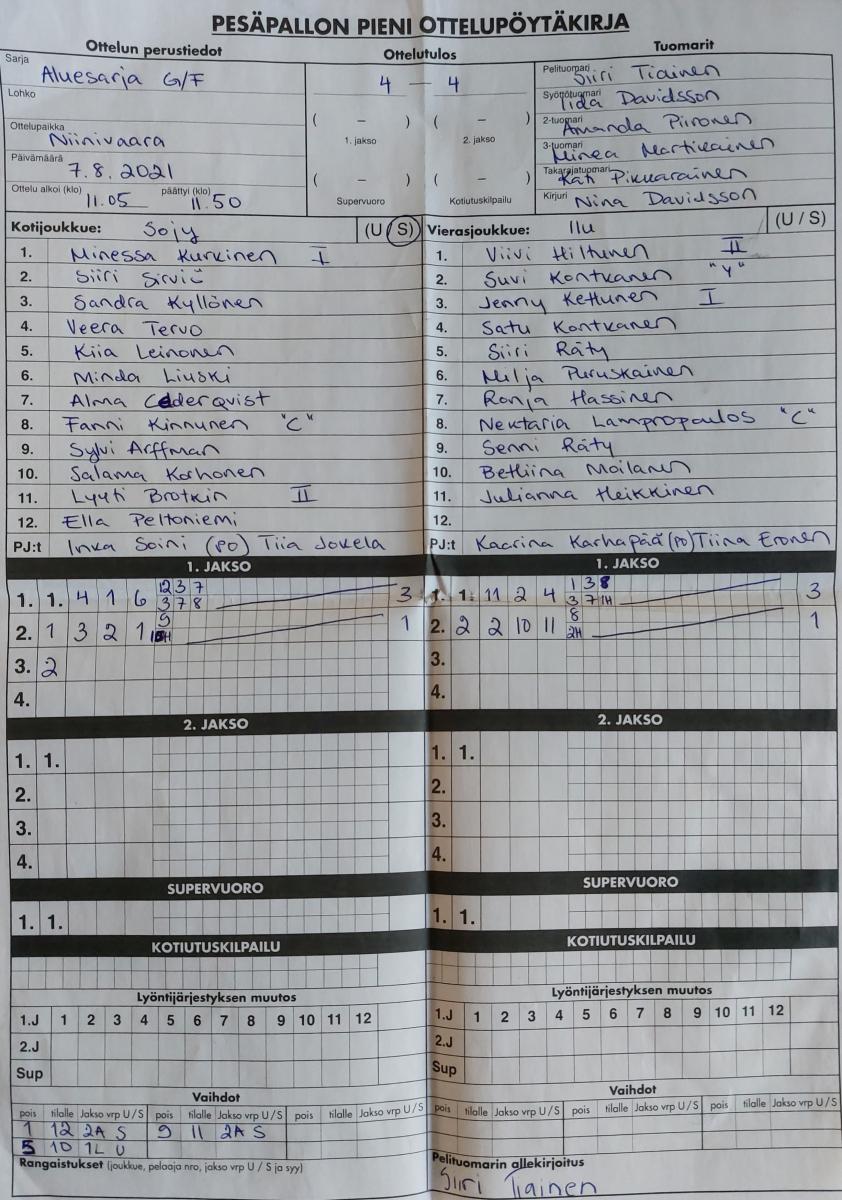 PESÄPALLON PIENI OTTELUPÖYTÄKIRJA
Ottelun perustiedot
Sarja
Aluesarja G/F
Lohko
Ottelupaikka
Niinivaara
Päivämäärä
7.8.2021
Ottelu alkoi (klo) 11.05 päättyi (klo) 11.50
Ottelutulos
4 — 4
( – ) ( – )
1. jakso 2. jakso
( – ) ( – )
Supervuoro Kotiutuskilpailu
Tuomarit
Pelituomari Siiri Tiainen
Syöttötuomari Iida Davidsson
2-tuomari Amanda Piironen
3-tuomari Minea Martikainen
Takarajatuomari Kati Pikkarainen
Kirjuri Nina Davidsson
Kotijoukkue: Sojy (U/S)
1. Minessa Kurkinen I
2. Siiri Sirviö
3. Sandra Kyllönen
4. Veera Tervo
5. Kiia Leinonen
6. Minda Liuski
7. Alma Cederqvist
8. Fanni Kinnunen "C"
9. Sylvi Arffman
10. Salama Korhonen
11. Lyyti Brotkin II
12. Ella Peltoniemi
PJ:t Inka Soini (PO) Tiia Jokela
Vierasjoukkue: Ilu (U / S)
1. Viivi Hiltunen II
2. Suvi Kontkanen "Y"
3. Jenny Kettunen I
4. Satu Kontkanen
5. Siiri Räty
6. Milja Puruskainen
7. Ronja Hassinen
8. Nektaria Lampropoulos "C"
9. Senni Räty
10. Bettiina Moilanen
11. Julianna Heikkinen
12.
PJ:t Kaarina Karhapää (PO) Tiina Eronen
1. JAKSO
1. 1. 4 1 6 12 3 7 3
3 7 8
2. 1 3 2 1 9 1
3. 2
4.
2. JAKSO
1. 1.
2.
3.
4.
SUPERVUORO
1. 1.
KOTIUTUSKILPAILU
Lyöntijärjestyksen muutos
1.J 1 2 3 4 5 6 7 8 9 10 11 12
2.J
Sup
Vaihdot
pois tilalle Jakso vrp U/S pois tilalle Jakso vrp U/S pois tilalle Jakso vrp U/S
1 12 2A S 9 11 2A S
5 10 1L U
Rangaistukset (joukkue, pelaaja nro, jakso vrp U / S ja syy)
1. JAKSO
1. 1. 11 2 4 1 3 8 3
3 7 1H
2. 2 2 10 11 8 1
2H
3.
4.
2. JAKSO
1. 1.
2.
3.
4.
SUPERVUORO
1. 1.
KOTIUTUSKILPAILU
Lyöntijärjestyksen muutos
1.J 1 2 3 4 5 6 7 8 9 10 11 12
2.J
Sup
Vaihdot
pois tilalle Jakso vrp U/S pois tilalle Jakso vrp U/S pois tilalle Jakso vrp U/S
Pelituomarin allekirjoitus
Siiri Tiainen